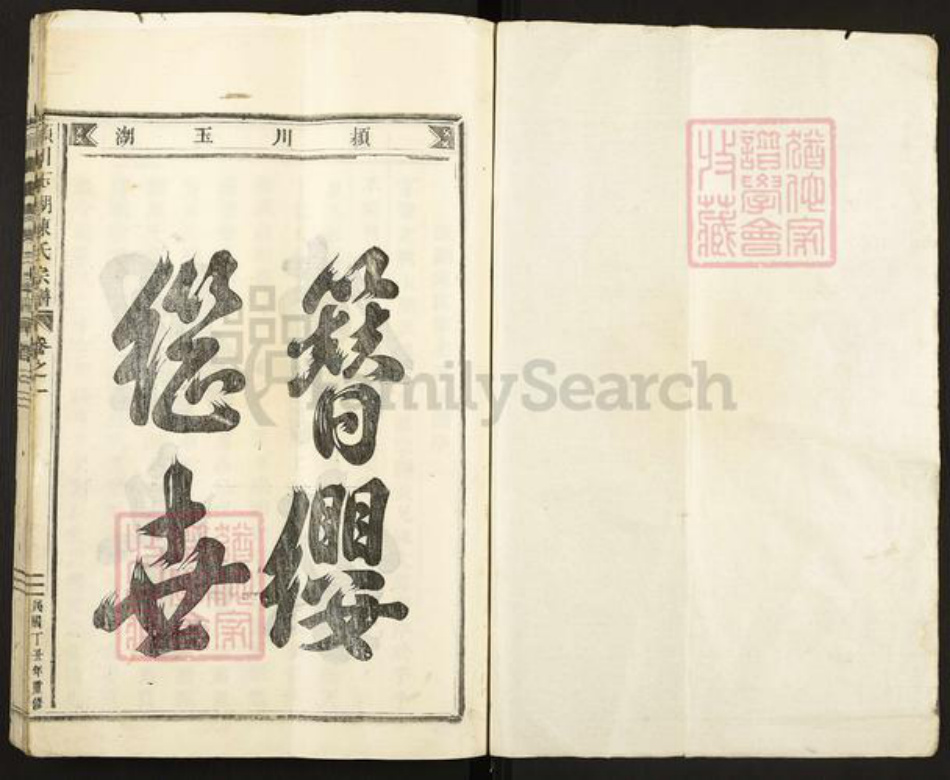 潁川玉湖
簪纓
繼世
潁川玉湖陳氏宗譜
卷之一
民國丁丑年重修
猶他家
譜學會
收藏
FamilySearch